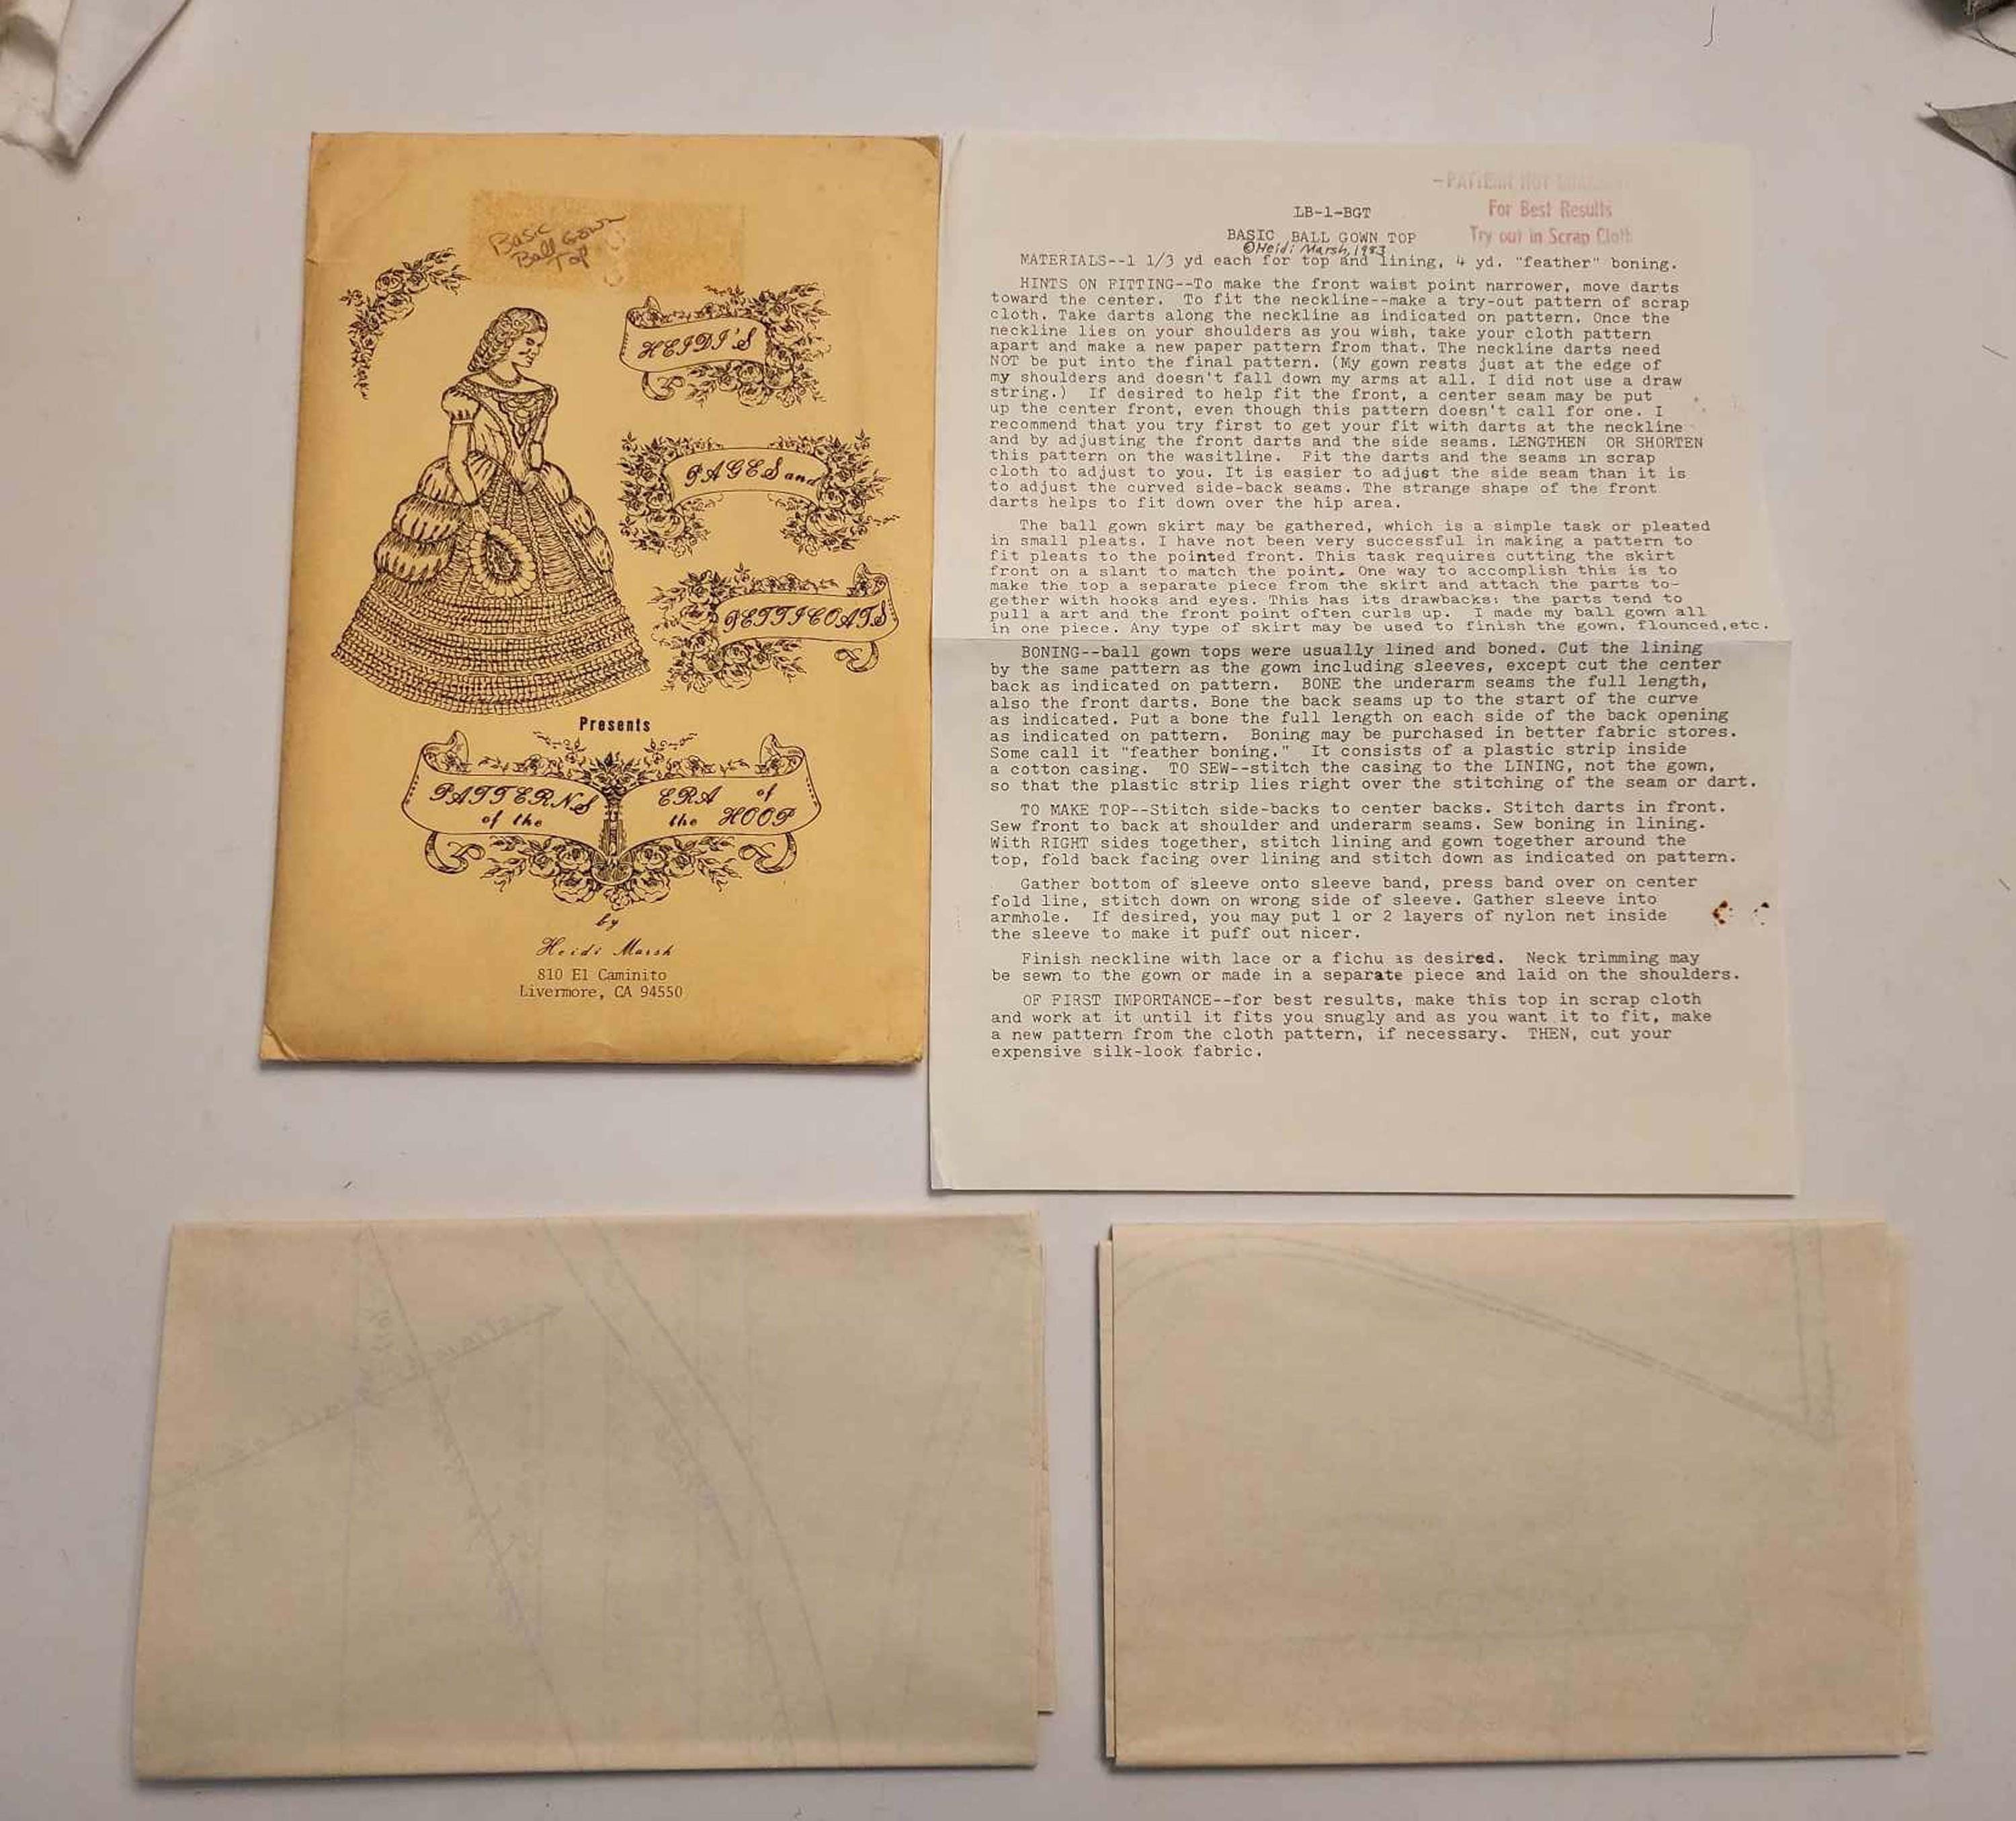 Basic
Ball Gown
Top
HEIDI'S
PAGES and
PETTICOATS
Presents
PATTERNS
of the
ERA of
the HOOP
by
Heidi Marsh
810 El Caminito
Livermore, CA 94550
-PATTERN NOT
For Best Results
Try out in Scrap Cloth
LB-1-BGT
BASIC BALL GOWN TOP
©Heidi Marsh, 1983
MATERIALS--1 1/3 yd each for top and lining, 4 yd. "feather" boning.
HINTS ON FITTING--To make the front waist point narrower, move darts
toward the center. To fit the neckline--make a try-out pattern of scrap
cloth. Take darts along the neckline as indicated on pattern. Once the
neckline lies on your shoulders as you wish, take your cloth pattern
apart and make a new paper pattern from that. The neckline darts need
NOT be put into the final pattern. (My gown rests just at the edge of
my shoulders and doesn't fall down my arms at all. I did not use a draw
string.) If desired to help fit the front, a center seam may be put
up the center front, even though this pattern doesn't call for one. I
recommend that you try first to get your fit with darts at the neckline
and by adjusting the front darts and the side seams. LENGTHEN OR SHORTEN
this pattern on the wasitline. Fit the darts and the seams in scrap
cloth to adjust to you. It is easier to adjust the side seam than it is
to adjust the curved side-back seams. The strange shape of the front
darts helps to fit down over the hip area.
The ball gown skirt may be gathered, which is a simple task or pleated
in small pleats. I have not been very successful in making a pattern to
fit pleats to the pointed front. This task requires cutting the skirt
front on a slant to match the point. One way to accomplish this is to
make the top a separate piece from the skirt and attach the parts to-
gether with hooks and eyes. This has its drawbacks: the parts tend to
pull a art and the front point often curls up. I made my ball gown all
in one piece. Any type of skirt may be used to finish the gown, flounced,etc.
BONING--ball gown tops were usually lined and boned. Cut the lining
by the same pattern as the gown including sleeves, except cut the center
back as indicated on pattern. BONE the underarm seams the full length,
also the front darts. Bone the back seams up to the start of the curve
as indicated. Put a bone the full length on each side of the back opening
as indicated on pattern. Boning may be purchased in better fabric stores.
Some call it "feather boning." It consists of a plastic strip inside
a cotton casing. TO SEW--stitch the casing to the LINING, not the gown,
so that the plastic strip lies right over the stitching of the seam or dart.
TO MAKE TOP--Stitch side-backs to center backs. Stitch darts in front.
Sew front to back at shoulder and underarm seams. Sew boning in lining.
With RIGHT sides together, stitch lining and gown together around the
top, fold back facing over lining and stitch down as indicated on pattern.
Gather bottom of sleeve onto sleeve band, press band over on center
fold line, stitch down on wrong side of sleeve. Gather sleeve into
armhole. If desired, you may put 1 or 2 layers of nylon net inside
the sleeve to make it puff out nicer.
Finish neckline with lace or a fichu as desired. Neck trimming may
be sewn to the gown or made in a separate piece and laid on the shoulders.
OF FIRST IMPORTANCE--for best results, make this top in scrap cloth
and work at it until it fits you snugly and as you want it to fit, make
a new pattern from the cloth pattern, if necessary. THEN, cut your
expensive silk-look fabric.